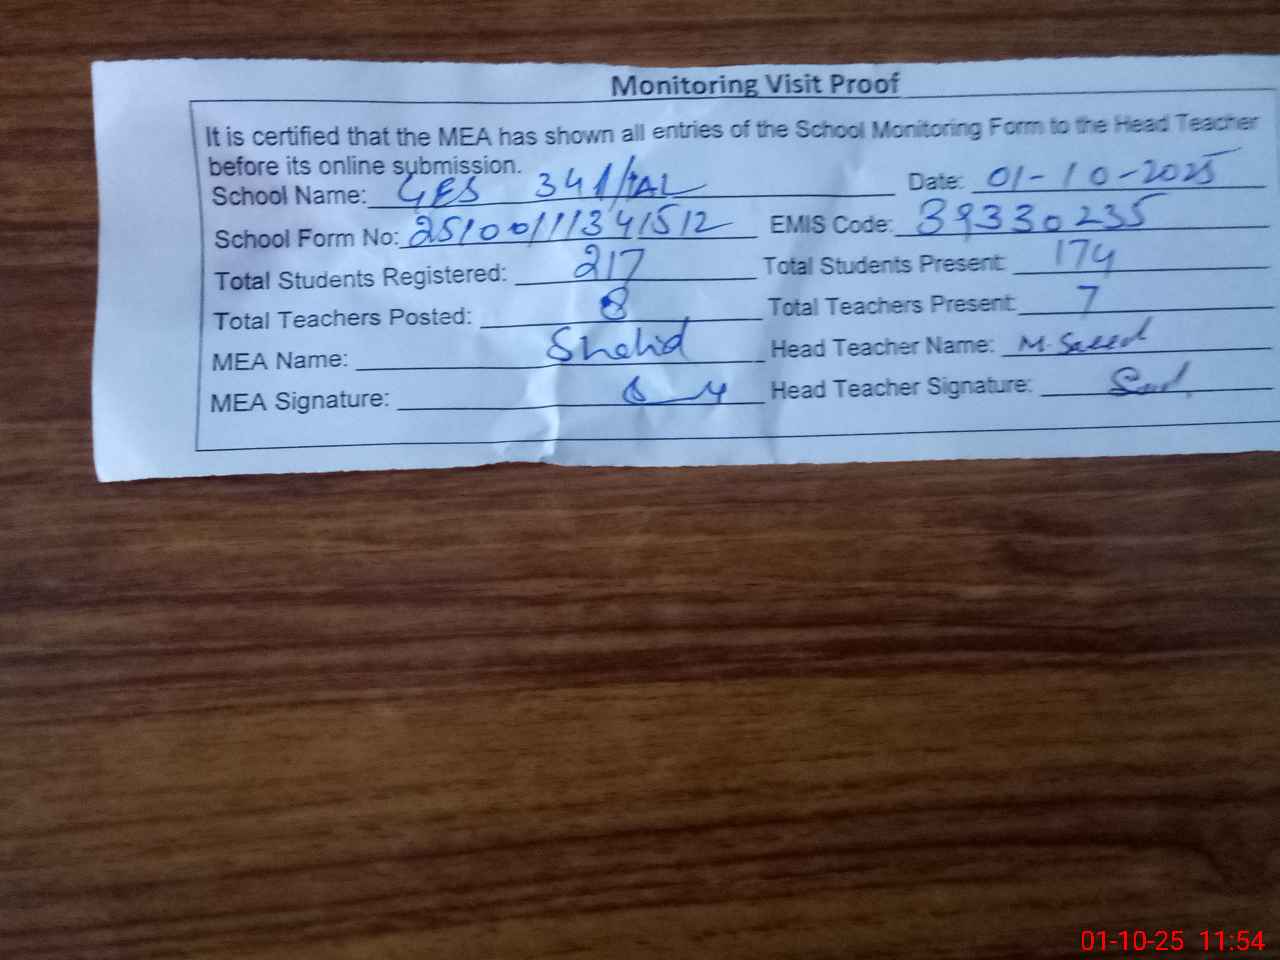 Monitoring Visit Proof
It is certified that the MEA has shown all entries of the School Monitoring Form to the Head Teacher
before its online submission.
School Name: GES 341/TAL Date: 01-10-2025
School Form No: 25100111341512 EMIS Code: 39330235
Total Students Registered: 217 Total Students Present: 174
Total Teachers Posted: 8 Total Teachers Present: 7
MEA Name: Shahid Head Teacher Name: M. Saeed
MEA Signature: Head Teacher Signature:
01-10-25 11:54